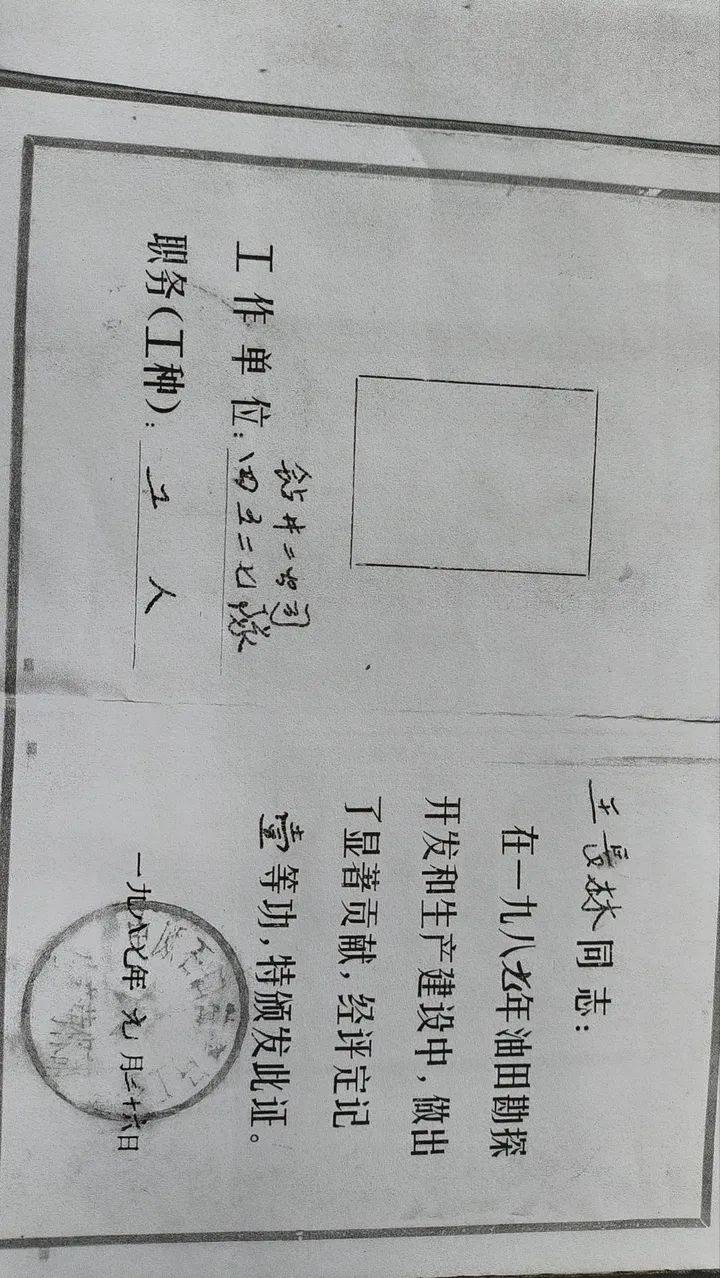 钻井二公司
工作单位：四五二七队
职务（工种）：工人
王長林同志：
在一九八七年油田勘探
开发和生产建设中，做出
了显著贡献，经评定记
壹等功，特颁发此证。
一九八七年元月二十六日